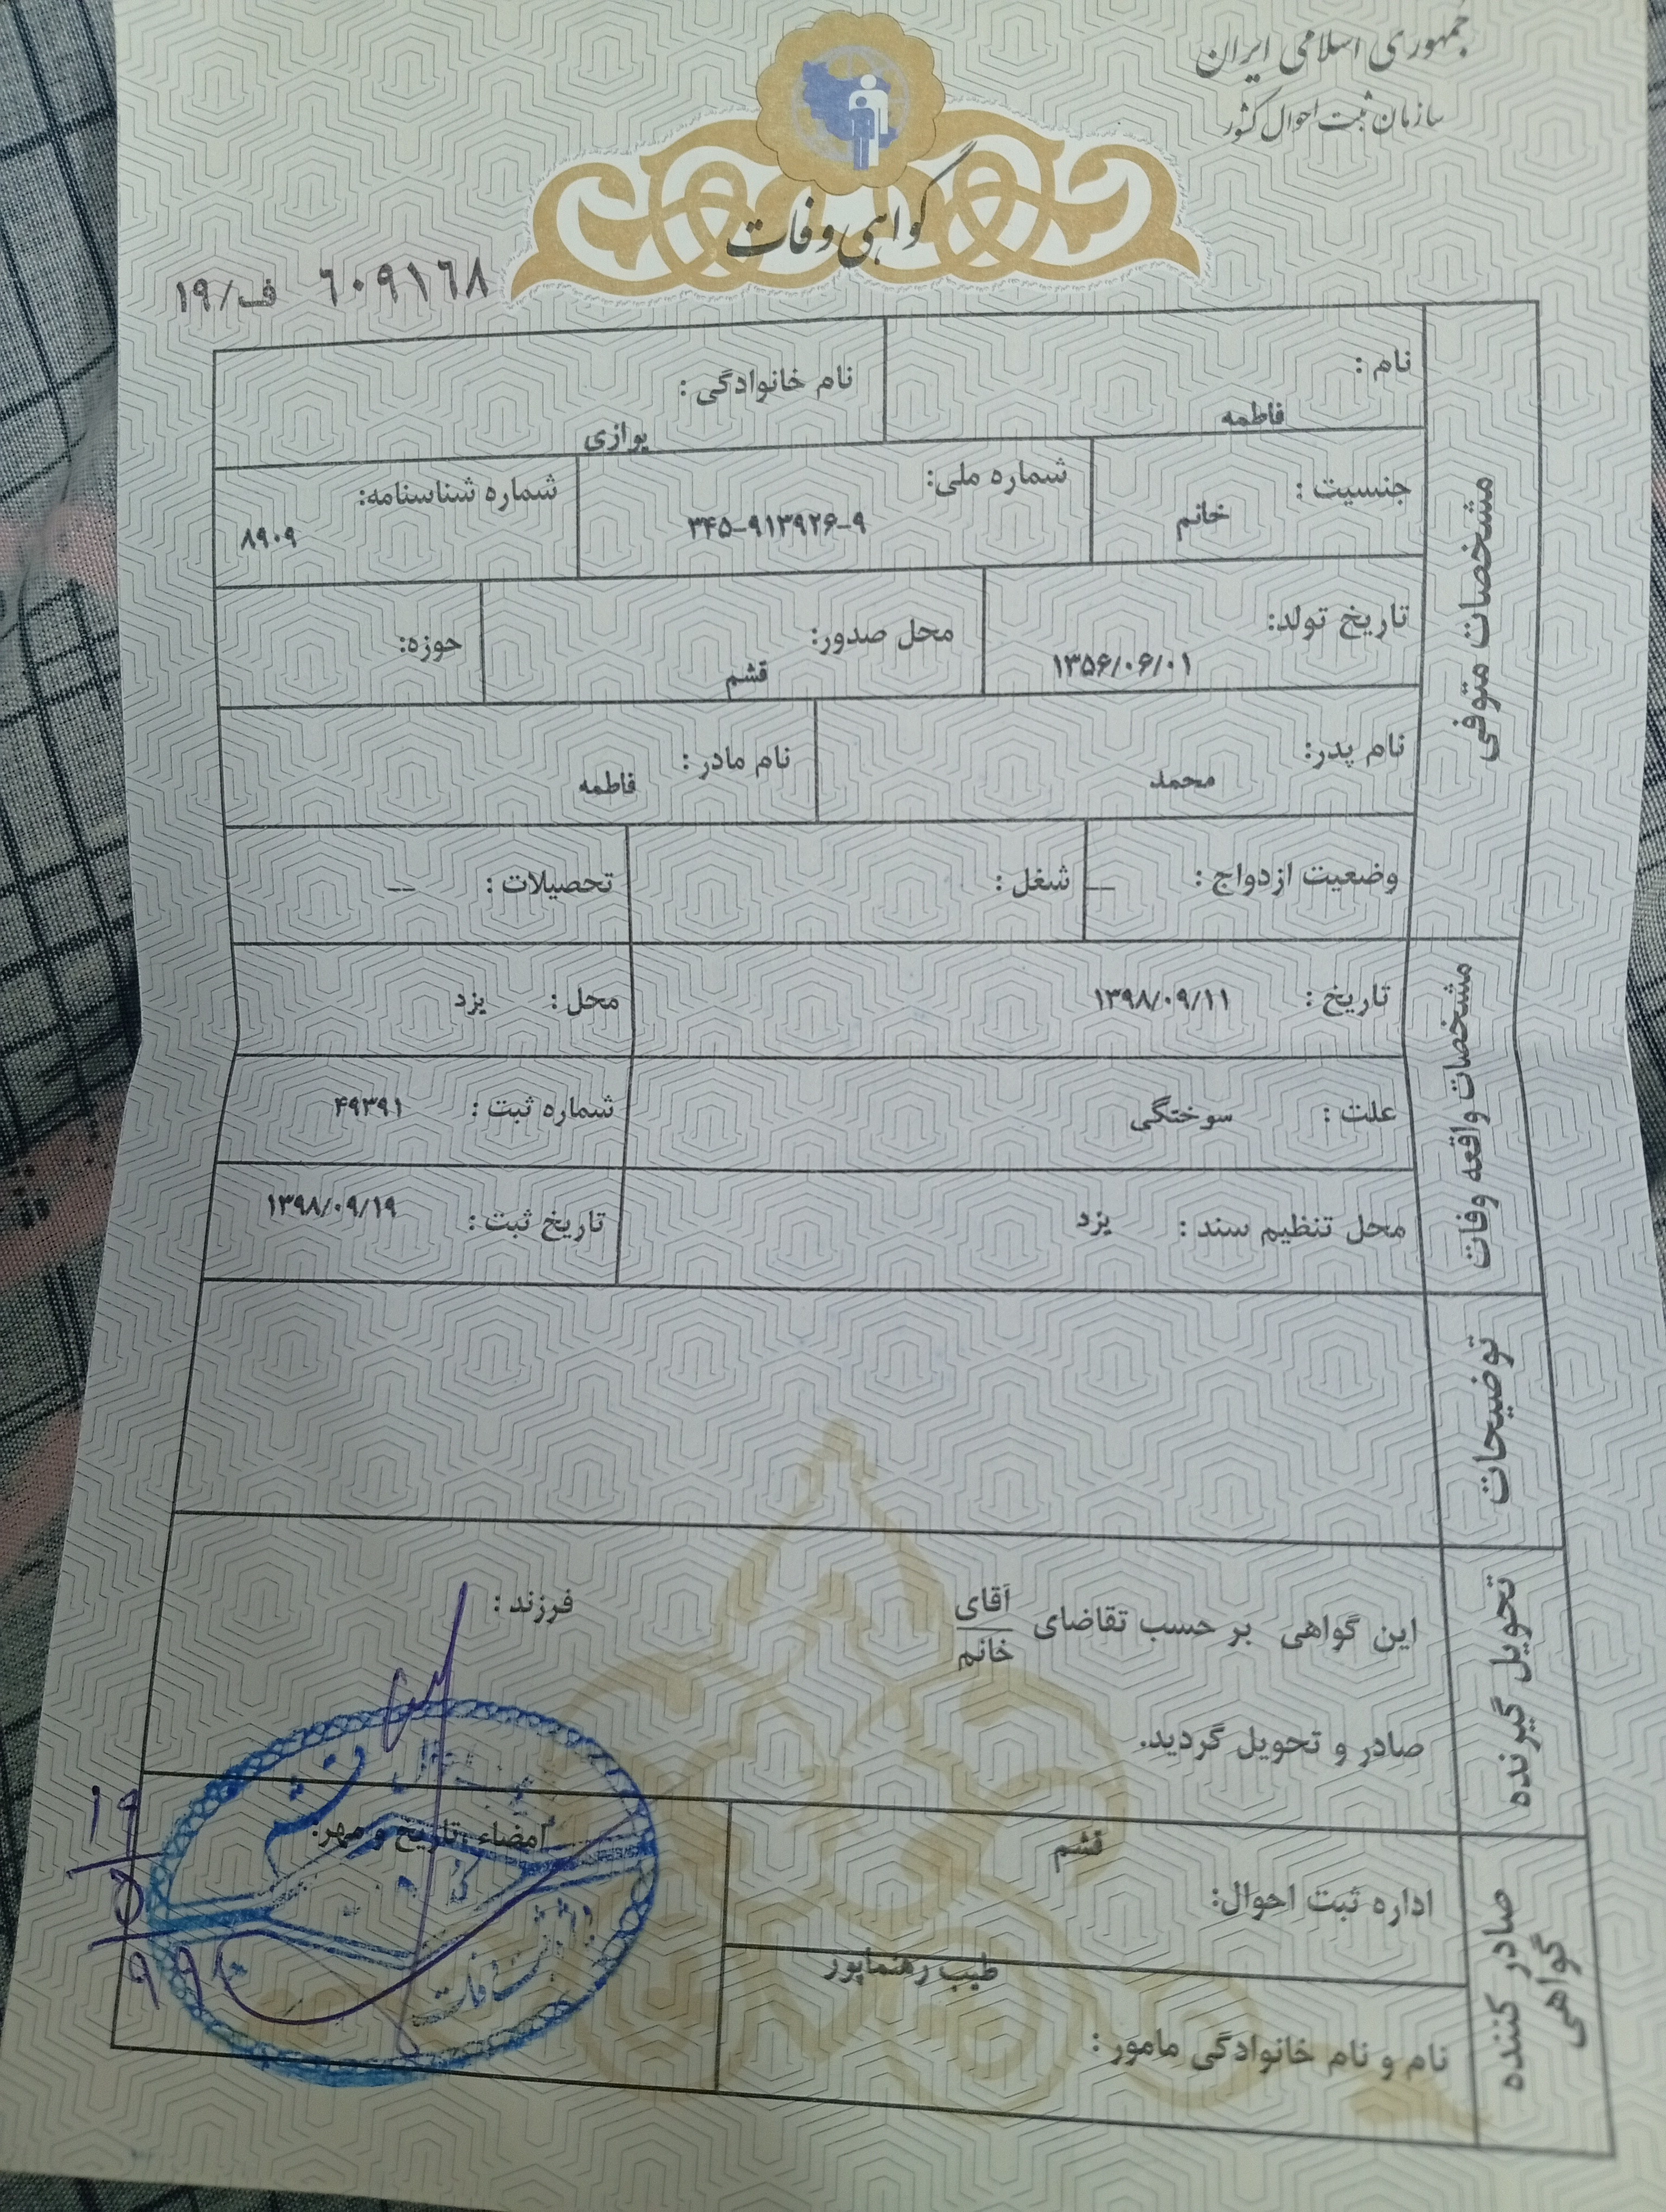 جمهوری اسلامی ایران
سازمان ثبت احوال کشور
گواهی وفات
٦٠٩١٦٨ ف/١٩
مشخصات متوفی
نام : فاطمه
نام خانوادگی : یوازی
جنسیت : خانم
شماره ملی: ۳۴۵-۹۱۳۹۲۶-۹
شماره شناسنامه: ۸۹۰۹
تاریخ تولد: ۱۳۵۶/۰۶/۰۱
محل صدور: قشم
حوزه:
نام پدر: محمد
نام مادر : فاطمه
وضعیت ازدواج : __
شغل :
تحصیلات : __
مشخصات واقعه وفات
تاریخ : ۱۳۹۸/۰۹/۱۱
محل : یزد
علت : سوختگی
شماره ثبت : ۴۹۳۹۱
محل تنظیم سند : یزد
تاریخ ثبت : ۱۳۹۸/۰۹/۱۹
توضیحات
تحویل گیرنده
این گواهی بر حسب تقاضای آقای
خانم
فرزند :
صادر و تحویل گردید.
صادر کننده گواهی
اداره ثبت احوال: قشم
امضاء ،تاریخ و مهر:
نام و نام خانوادگی مامور : طیب رهنماپور
قشم
وفات
۱۹
۵
۹۹